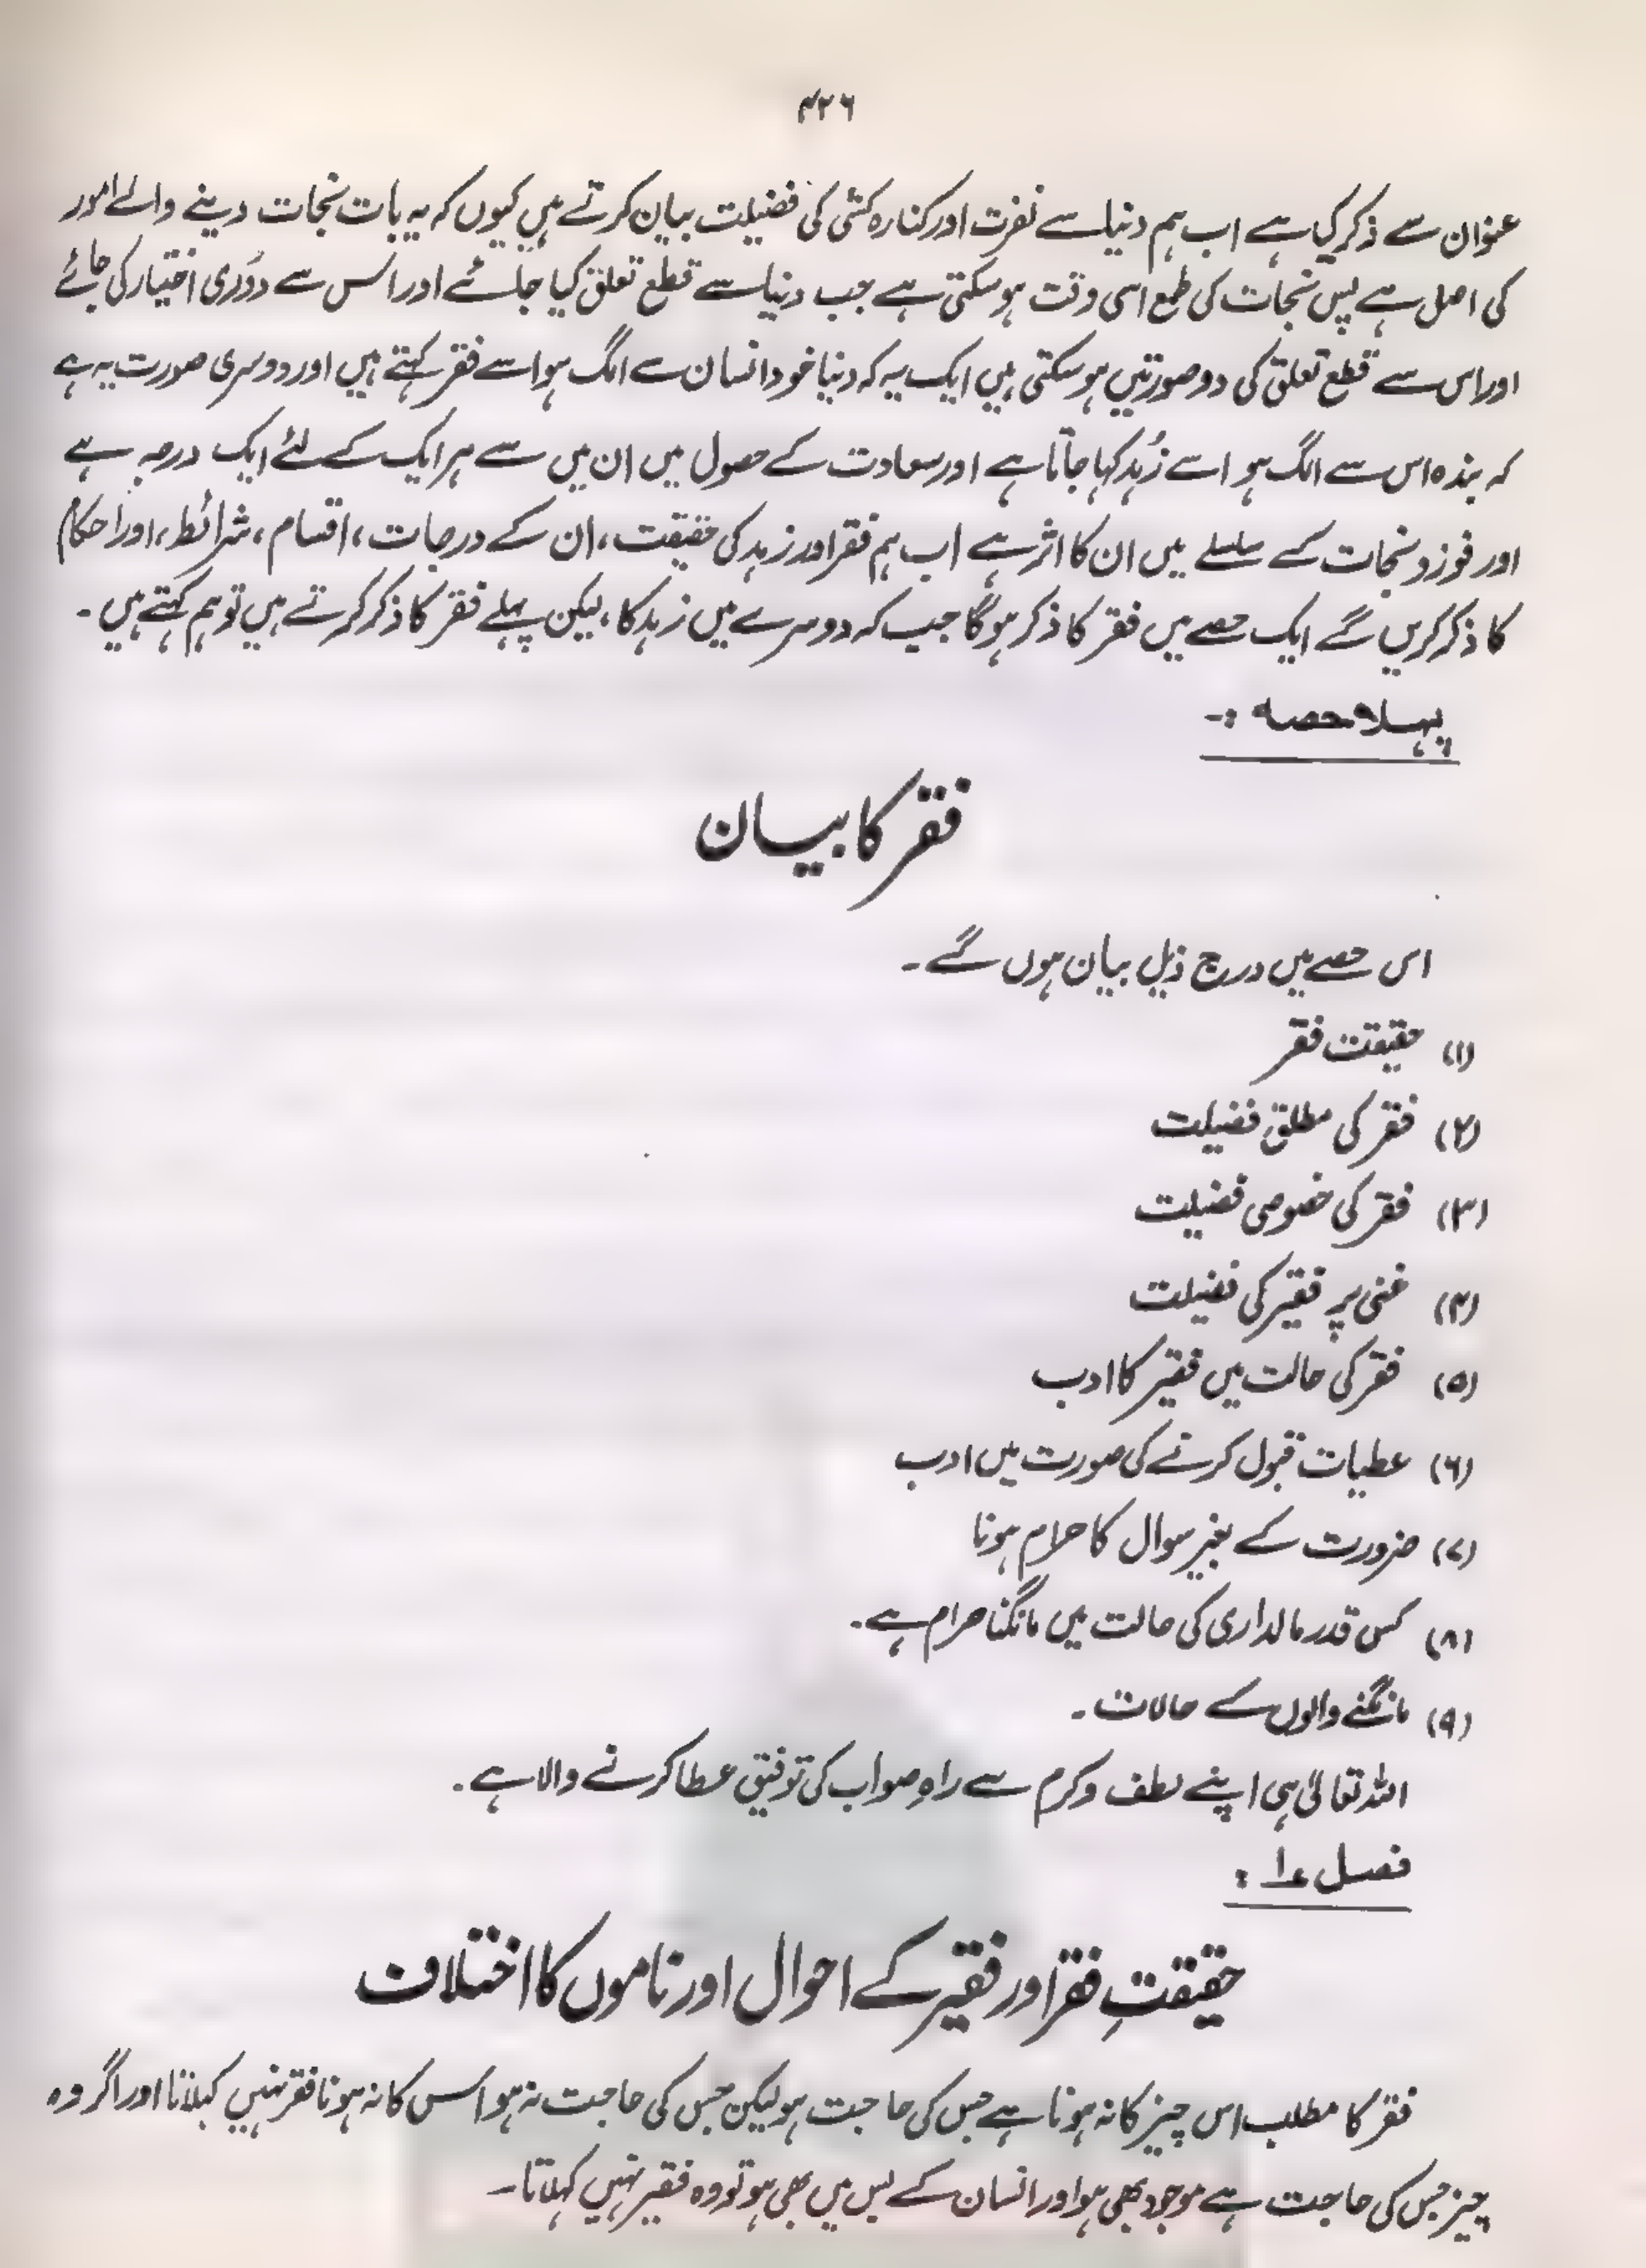 ۴۲۶
عنوان سے ذکر کیا ہے اب ہم دنیا سے نفرت اور کنارہ کشی کی فضیلت بیان کرتے ہیں کیوں کہ یہ بات نجات دینے والے امور
کی اصل ہے پس نجات کی طمع اسی وقت ہو سکتی ہے جب دنیا سے قطع تعلق کیا جائے اور اس سے دُوری اختیار کی جائے
اور اس سے قطع تعلق کی دو صورتیں ہو سکتی ہیں ایک یہ کہ دنیا خود انسان سے الگ ہو اسے فقر کہتے ہیں اور دوسری صورت یہ ہے
کہ بندہ اس سے الگ ہو اسے زُہد کہا جاتا ہے اور سعادت کے حصول میں ان میں سے ہر ایک کے لئے ایک درجہ ہے
اور فوز و نجات کے سلسلے میں ان کا اثر ہے اب ہم فقر اور زہد کی حقیقت، ان کے درجات، اقسام، شرائط، اور احکام
کا ذکر کریں گے ایک حصے میں فقر کا ذکر ہوگا جب کہ دوسرے میں زہد کا، لیکن پہلے فقر کا ذکر کرتے ہیں تو ہم کہتے ہیں۔
پہلا حصہ :-
فقر کا بیان
اس حصے میں درج ذیل بیان ہوں گے۔
(۱) حقیقت فقر
(۲) فقر کی مطلق فضیلت
(۳) فقر کی خصوصی فضیلت
(۴) غنی پر فقیر کی فضیلت
(۵) فقر کی حالت میں فقیر کا ادب
(۶) عطیات قبول کرنے کی صورت میں ادب
(۷) ضرورت کے بغیر سوال کا حرام ہونا
(۸) کس قدر مالداری کی حالت میں مانگنا حرام ہے۔
(۹) مانگنے والوں کے حالات۔
اللہ تعالیٰ ہی اپنے لطف و کرم سے راہِ صواب کی توفیق عطا کرنے والا ہے۔
فصل ۱ :
حقیقتِ فقر اور فقیر کے احوال اور ناموں کا اختلاف
فقر کا مطلب اس چیز کا نہ ہونا ہے جس کی حاجت ہو لیکن جس کی حاجت نہ ہو اس کا نہ ہونا فقر نہیں کہلاتا اور اگر وہ
چیز جس کی حاجت ہے موجود بھی ہو اور انسان کے بس میں بھی ہو تو وہ فقیر نہیں کہلاتا۔